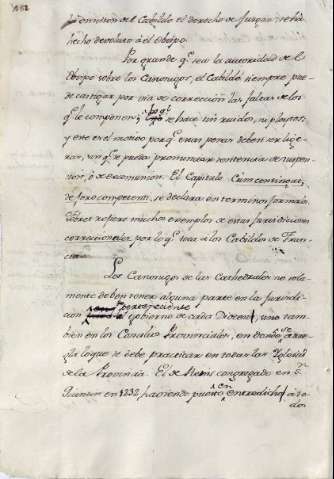 omision del Cabildo el derecho de Juzgar se há
hecho devoluto á el Obispo.
Por grande qe. sea la autoridad de el
Obispo sobre los Canonigos, el Cabildo siempre pue-
de castigar por via de correccion las faltas de los
qe. le componen; lo qe. se hace sin ruido, ni pleytos,
y este es el motivo porqe. estas penas deben ser lige-
ras, sin qe. se pueda pronunciar sentencia de suspen-
sion, ó de excomunion. El Capitulo Cum contingat
de foro competenti, se declara en terminos formales
refiere muchos exemplos de esta jurisdiccion
correccional por lo qe. toca á los Cabildos de Fran-
cia.
Los Canonigos de las Cathedrales no sola-
mente deben tener alguna parte en la jurisdic-
cion perteneciente al gobierno de cada Diocesi, sino tam-
bien en los Concilios Provinciales, en donde se arre-
gla lo que se debe practicar en todas las Yglesias
de la Provincia. El de Rems congregado en Sn.
Quintin en 1232, haviendo puesto en entredicho á to-
dos